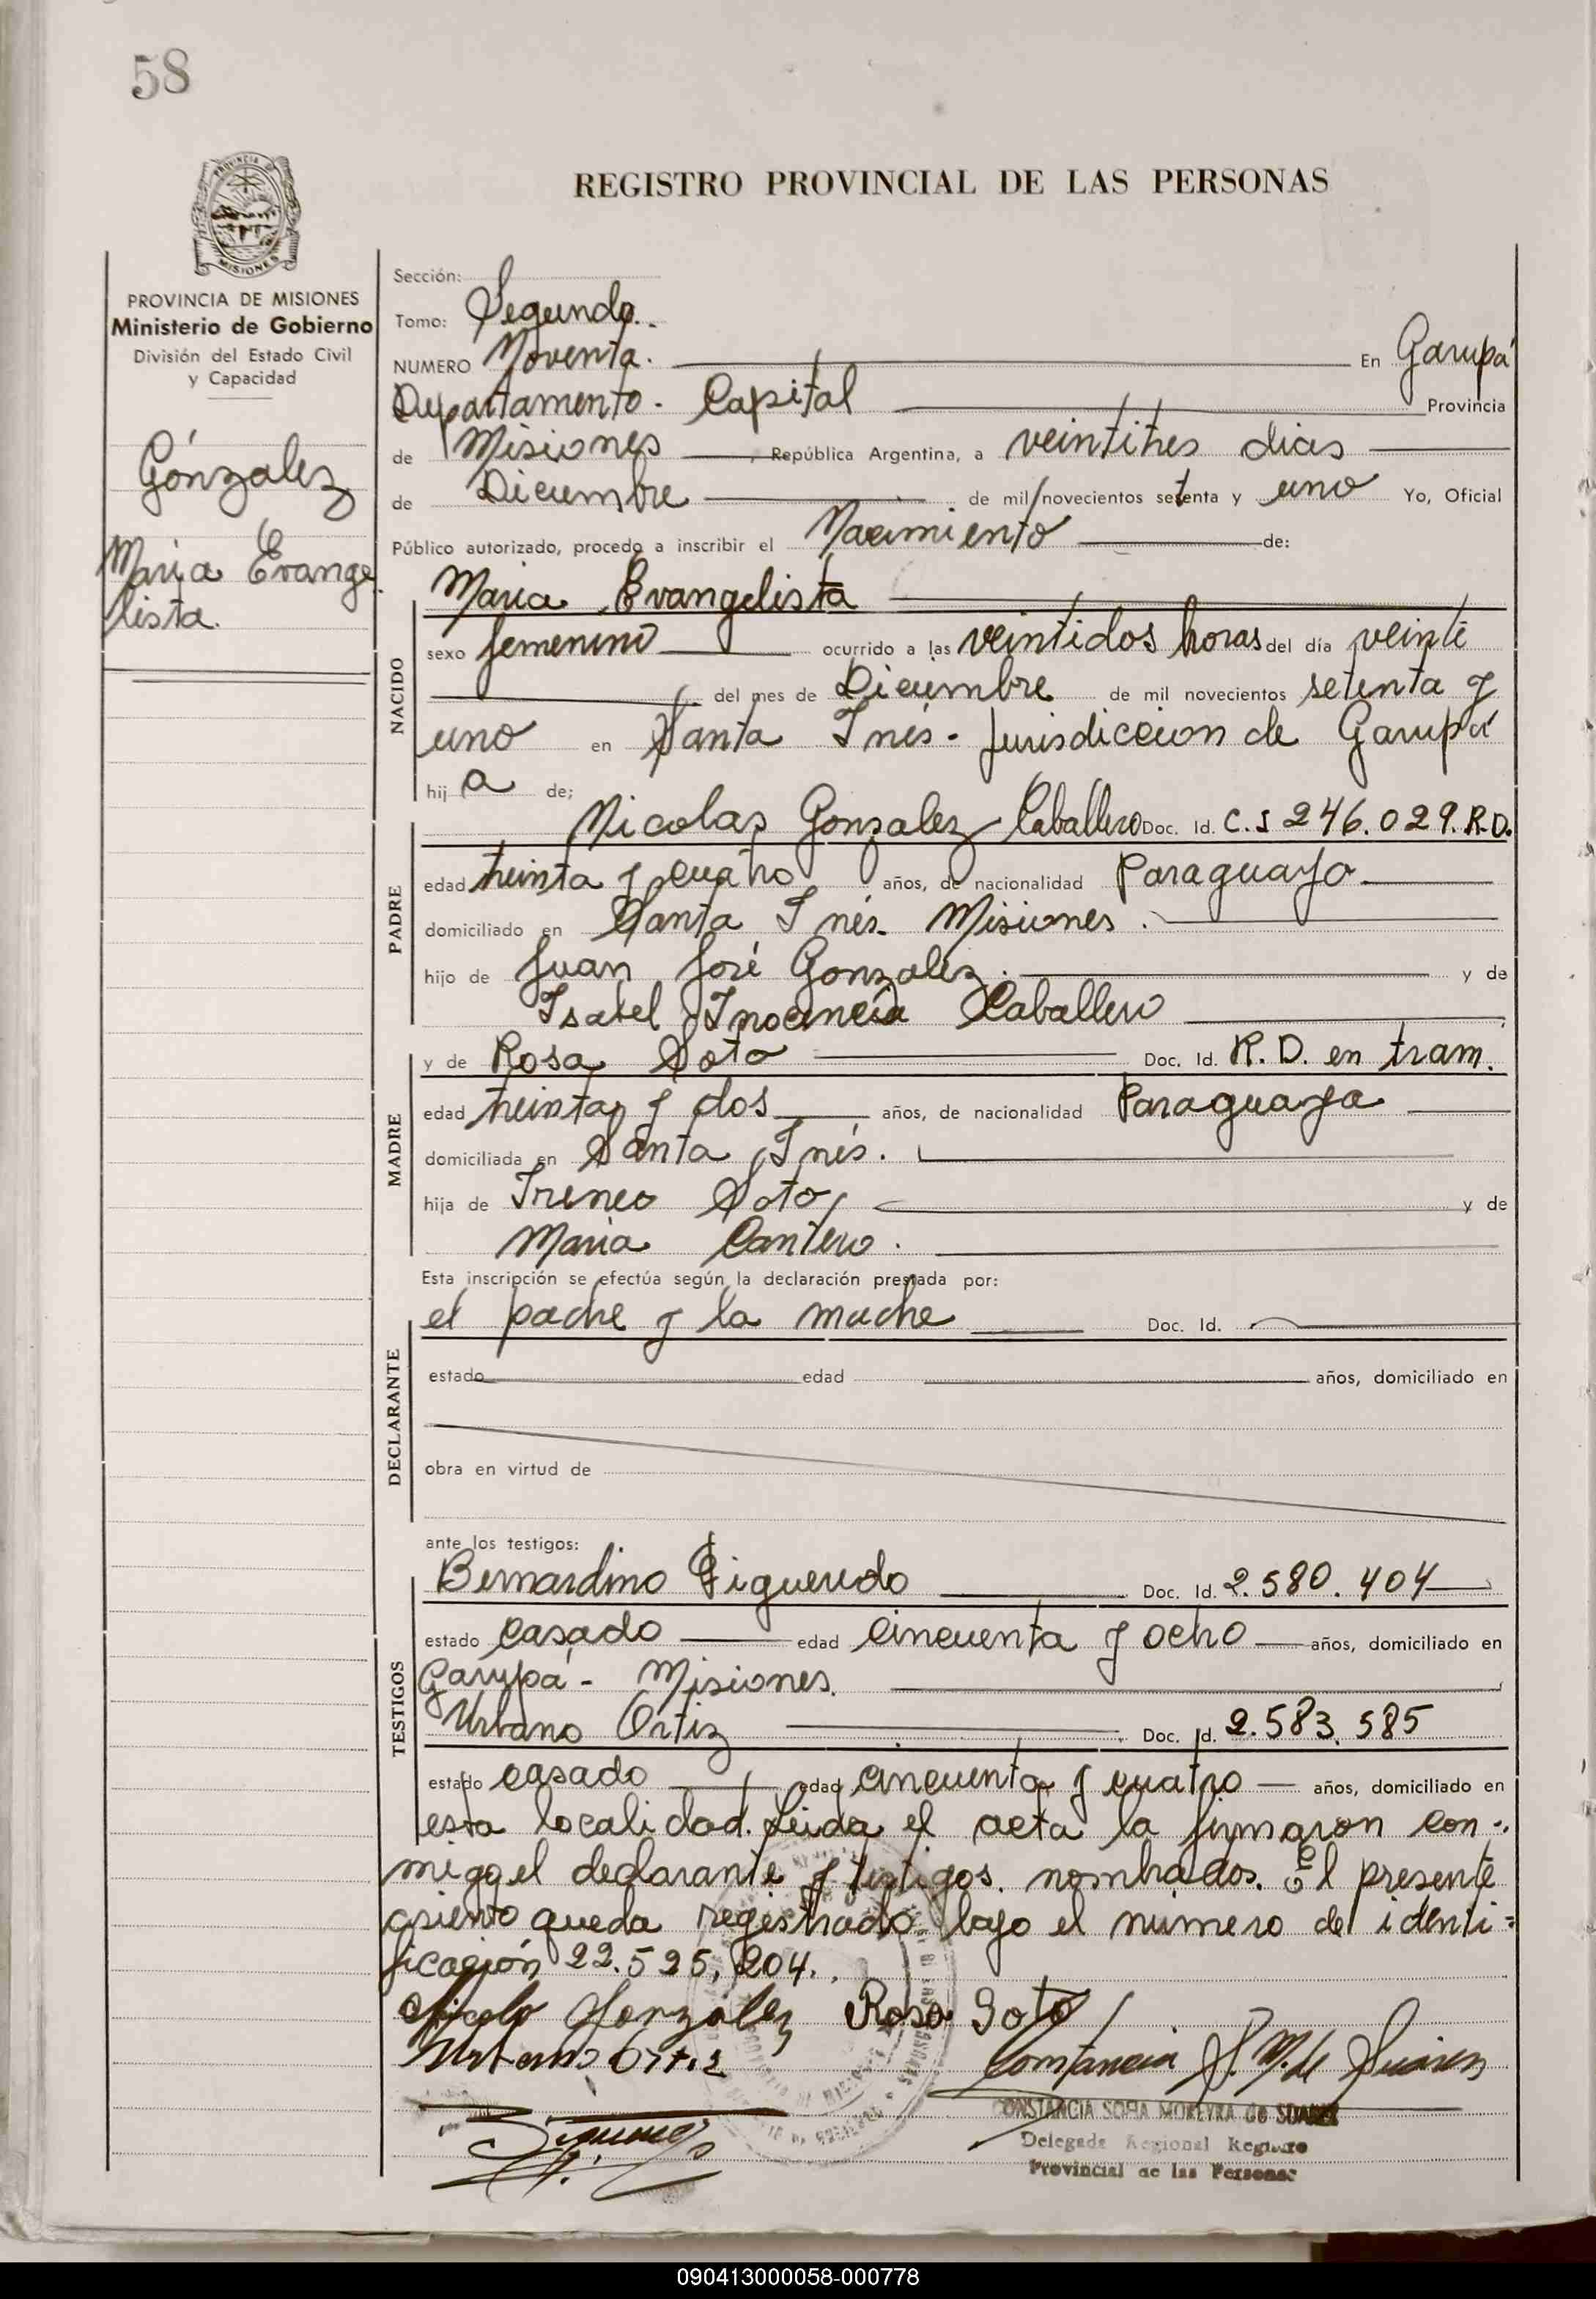 58
PROVINCIA DE
MISIONES
REGISTRO PROVINCIAL DE LAS PERSONAS
PROVINCIA DE MISIONES
Ministerio de Gobierno
División del Estado Civil
y Capacidad
Gónzalez
Maria Evange
lista.
Sección:
Tomo: Segundo.
NUMERO Noventa. En Garupá
Departamento. Capital Provincia
de Misiones, República Argentina, a veintitres dias
de Diciembre de mil novecientos setenta y uno Yo, Oficial
Público autorizado, procedo a inscribir el Nacimiento de:
NACIDO
Maria Evangelista
sexo femenino ocurrido a las veintidos horas del día veinte
del mes de Diciembre de mil novecientos setenta y
uno en Santa Inés. Jurisdiccion de Garupá
hij a de;
PADRE
Nicolas Gonzalez Caballero Doc. Id. C.I 246.029. R.D.
edad treinta y cuatro años, de nacionalidad Paraguayo
domiciliado en Santa Inés. Misiones.
hijo de Juan José Gonzalez. y de
Isabel Inocencia Caballero
MADRE
y de Rosa Soto Doc. Id. R. D. en tram.
edad treinta y dos años, de nacionalidad Paraguaya
domiciliada en Santa Inés.
hija de Ireneo Soto, y de
Maria Cantero.
Esta inscripción se efectúa según la declaración prestada por:
DECLARANTE
el padre y la madre Doc. Id.
estado edad años, domiciliado en
obra en virtud de
ante los testigos:
TESTIGOS
Bernardino Figueredo Doc. Id. 2.580.404
estado casado edad cincuenta y ocho años, domiciliado en
Garupá - Misiones.
Urbano Ortiz Doc. Id. 2.583.585
estado casado edad cincuenta y cuatro años, domiciliado en
esta localidad. Leida el acta la firmaron con-
migo el declarante y testigos nombrados. El presente
asiento queda registrado bajo el número de identi=
ficación 22.525.204.
Nicolas Gonzalez Rosa Soto
Urbano Ortiz Constancia S. M. de Suárez
CONSTANCIA SOFIA MOREYRA de SUAREZ
Delegada Regional Registro
Provincial de las Personas
090413000058-000778